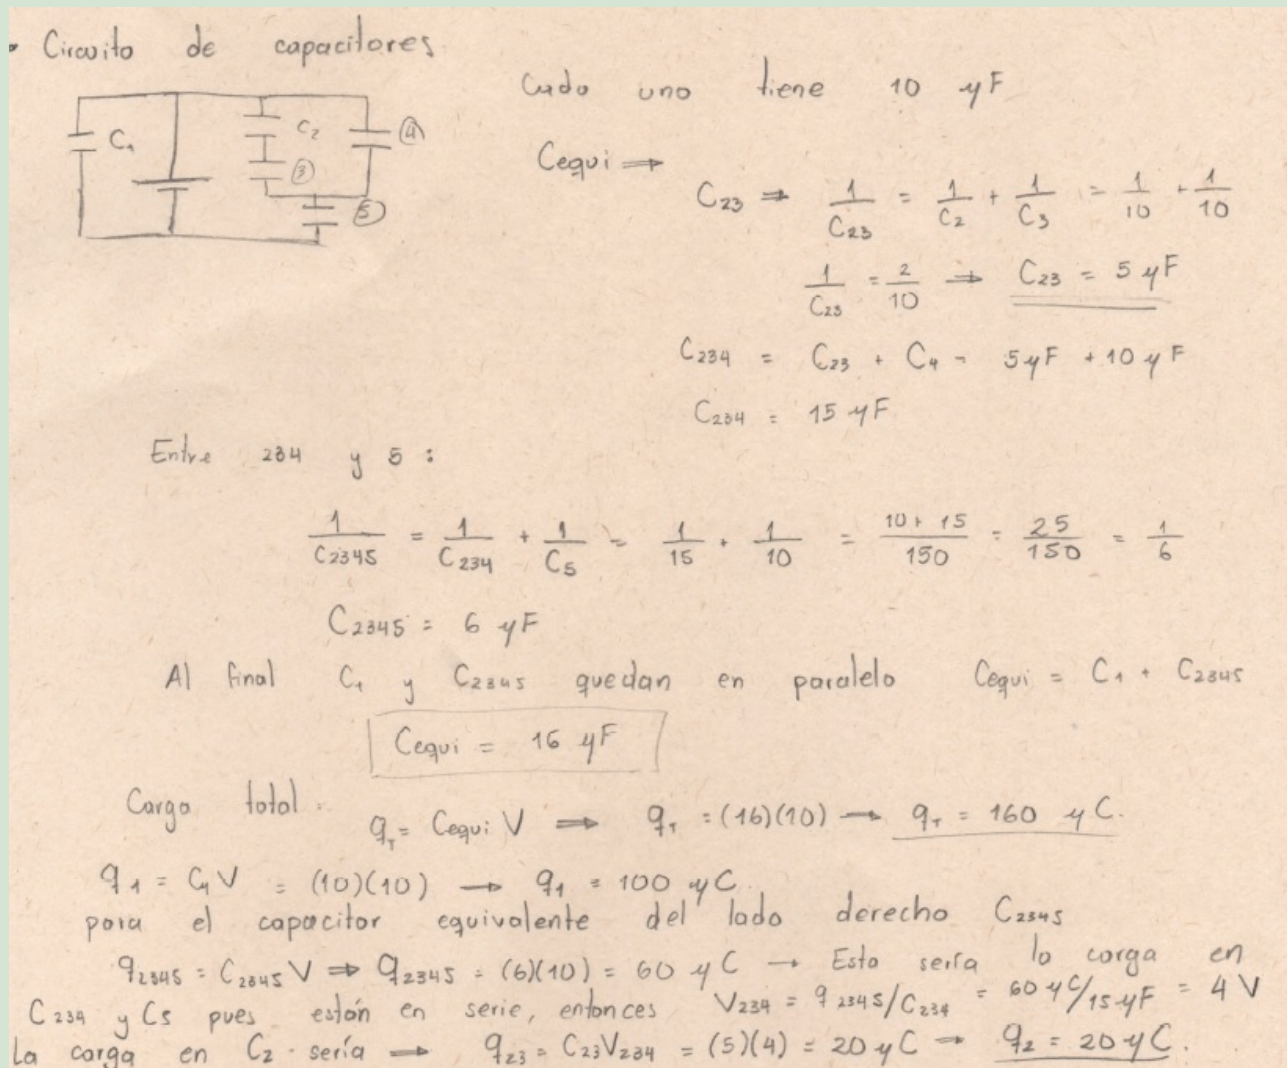 • Circuito de capacitores
C₁
C₂
③
④
⑤
Cada uno tiene 10 μF
Cequi ⇒
C₂₃ ⇒ 1/C₂₃ = 1/C₂ + 1/C₃ = 1/10 + 1/10
1/C₂₃ = 2/10 → C₂₃ = 5 μF
C₂₃₄ = C₂₃ + C₄ = 5 μF + 10 μF
C₂₃₄ = 15 μF
Entre 234 y 5 :
1/C₂₃₄₅ = 1/C₂₃₄ + 1/C₅ = 1/15 + 1/10 = 10 + 15/150 = 25/150 = 1/6
C₂₃₄₅ = 6 μF
Al final C₁ y C₂₃₄₅ quedan en paralelo Cequi = C₁ + C₂₃₄₅
Cequi = 16 μF
Carga total:
q_T = Cequi V ⇒ q_T = (16)(10) → q_T = 160 μC.
q₁ = C₁V = (10)(10) → q₁ = 100 μC
para el capacitor equivalente del lado derecho C₂₃₄₅
q₂₃₄₅ = C₂₃₄₅ V ⇒ q₂₃₄₅ = (6)(10) = 60 μC → Esta sería la carga en
C₂₃₄ y C₅ pues están en serie, entonces V₂₃₄ = q₂₃₄₅/C₂₃₄ = 60 μC/15 μF = 4 V
La carga en C₂ sería → q₂₃ = C₂₃V₂₃₄ = (5)(4) = 20 μC → q₂ = 20 μC.